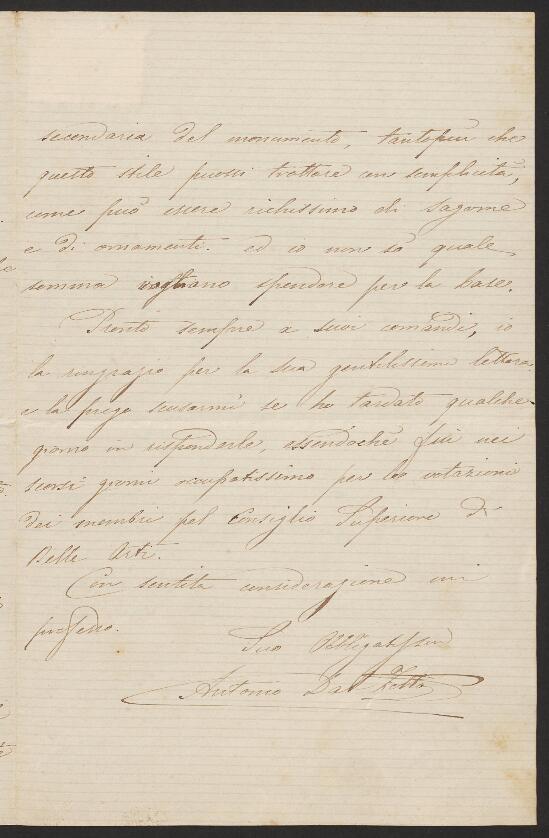 secondaria del monumento, tantopiù che
questo stile puossi trattare con semplicità,
come può essere ricchissimo di sagome
e di ornamenti. ed io non so quale
somma vogliano spendere per la base.
Pronto sempre a suoi comandi, io
la ringrazio per la sua gentilissima lettera,
e la prego scusarmi se ho tardato qualche
giorno in risponderle, essendochè fui nei
scorsi giorni occupatissimo per le votazioni
dei membri pel Consiglio Superiore di
Belle Arti.
Con sentita considerazione mi
professo.
Suo Obbligatissimo
Antonio Dal Zotto